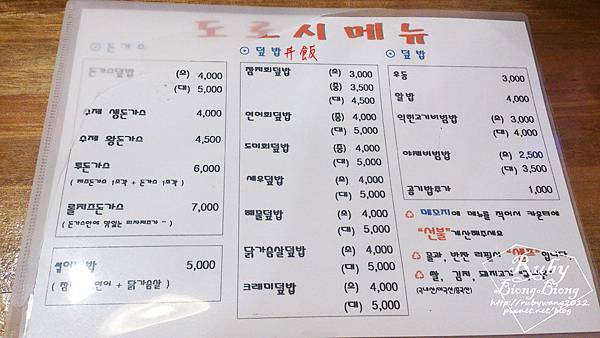 도로시메뉴
돈가스
돈가스덮밥 (소) 4,000
(대) 5,000
수제 생돈가스 4,000
수제 왕돈가스 4,500
투돈가스 6,000
( 치즈돈가스 1조각 + 돈가스 1조각 )
롤치즈돈가스 7,000
( 돈가스안에 맛있는 피자치즈가 ~ )
5,000
연어 + 닭가슴살 )
덮밥 丼飯
참치회덮밥 (소) 3,000
(중) 3,500
(대) 4,500
연어회덮밥 (중) 4,000
(대) 5,000
도미회덮밥 (중) 4,000
(대) 5,000
새우덮밥 (소) 4,000
(대) 5,000
해물덮밥 (소) 4,000
(대) 5,000
닭가슴살덮밥 (소) 4,000
(대) 5,000
크래미덮밥 (소) 4,000
(대) 5,000
덮밥
우동 3,000
알밥 4,000
익힌고기비빔밥 (소) 3,000
(대) 4,000
야채비빔밥 (소) 2,500
(대) 3,500
공기밥추가 1,000
메모지에 메뉴를 적어서 카운터에
"선불"계산해주세요
물과, 반찬 리필시 "셀프"입니다.
쌀, 김치, 돼지고기
Ruby
Biong Biong
http://rubywang2012
pixnet.net/blog